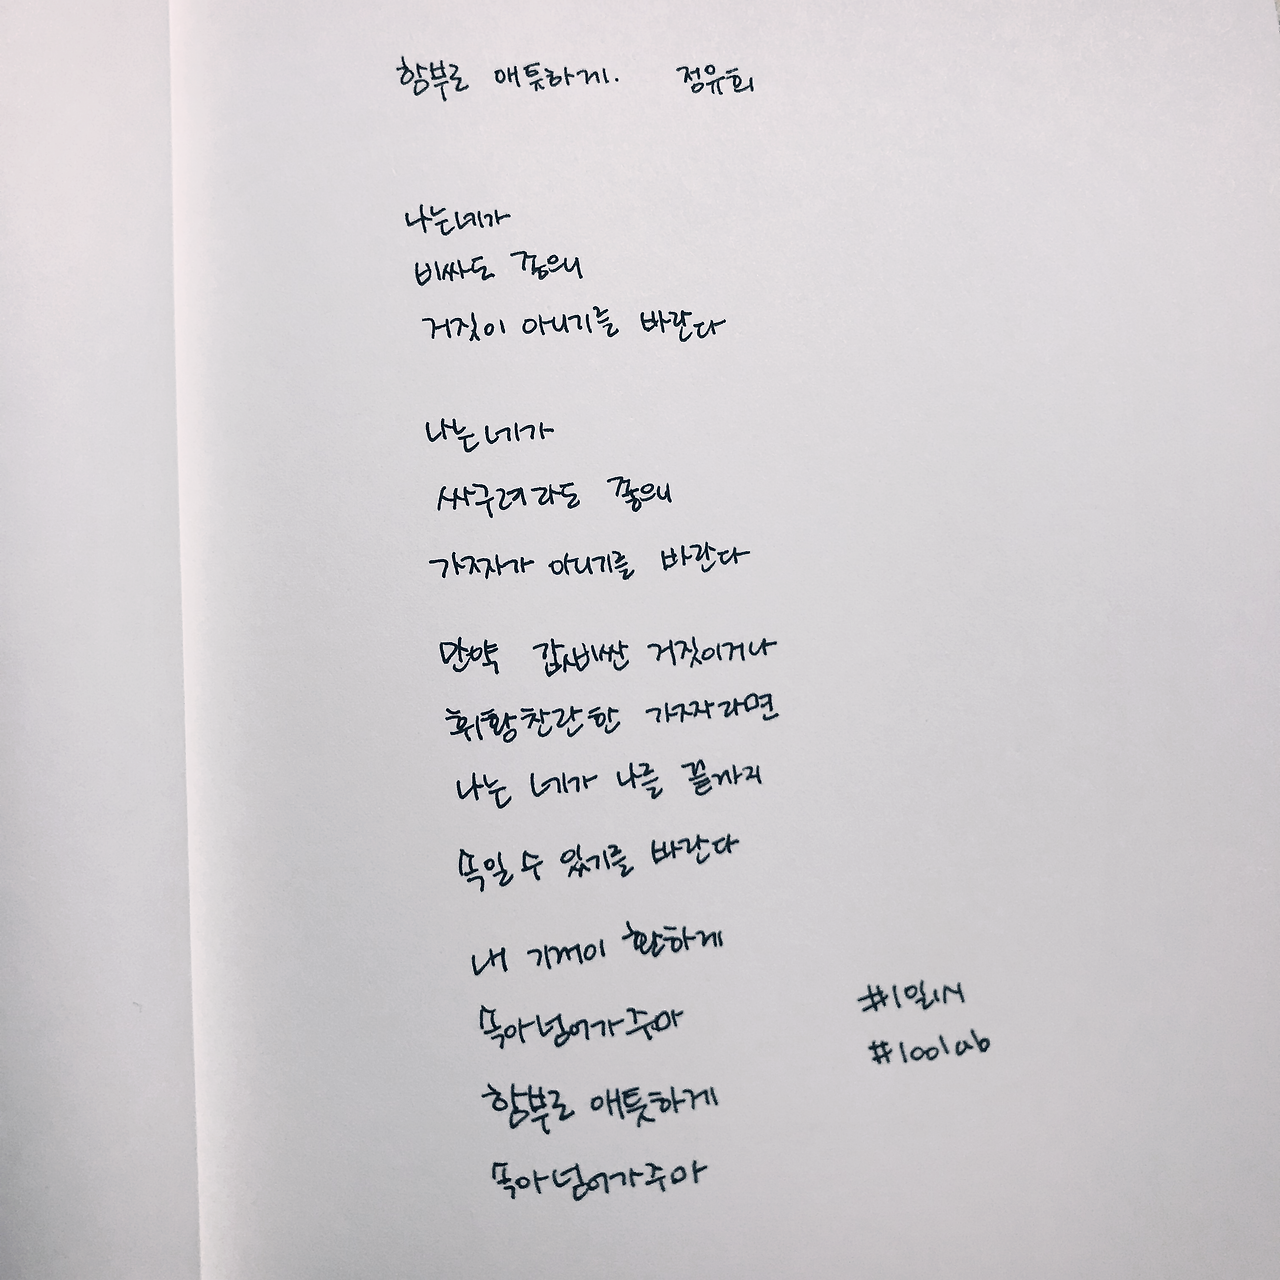 함부로 애틋하게. 정유희
나는 네가
비싸도 좋으니
거짓이 아니기를 바란다
나는 네가
싸구려라도 좋으니
가짜가 아니기를 바란다
만약 값비싼 거짓이거나
휘황찬란한 가짜라면
나는 네가 나를 끝까지
속일 수 있기를 바란다
내 기꺼이 환하게
속아넘어가주마
#1일1N
#100lab
함부로 애틋하게
속아넘어가주마